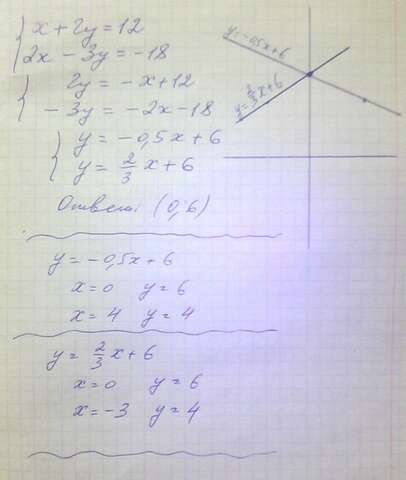 x + 2y = 12
2x - 3y = -18
2y = -x + 12
-3y = -2x - 18
y = -0,5x + 6
y = 2/3 x + 6
Ответ: (0; 6)
y = -0,5x + 6
x = 0 y = 6
x = 4 y = 4
y = 2/3 x + 6
x = 0 y = 6
x = -3 y = 4
y = -0,5x + 6
y = 2/3 x + 6